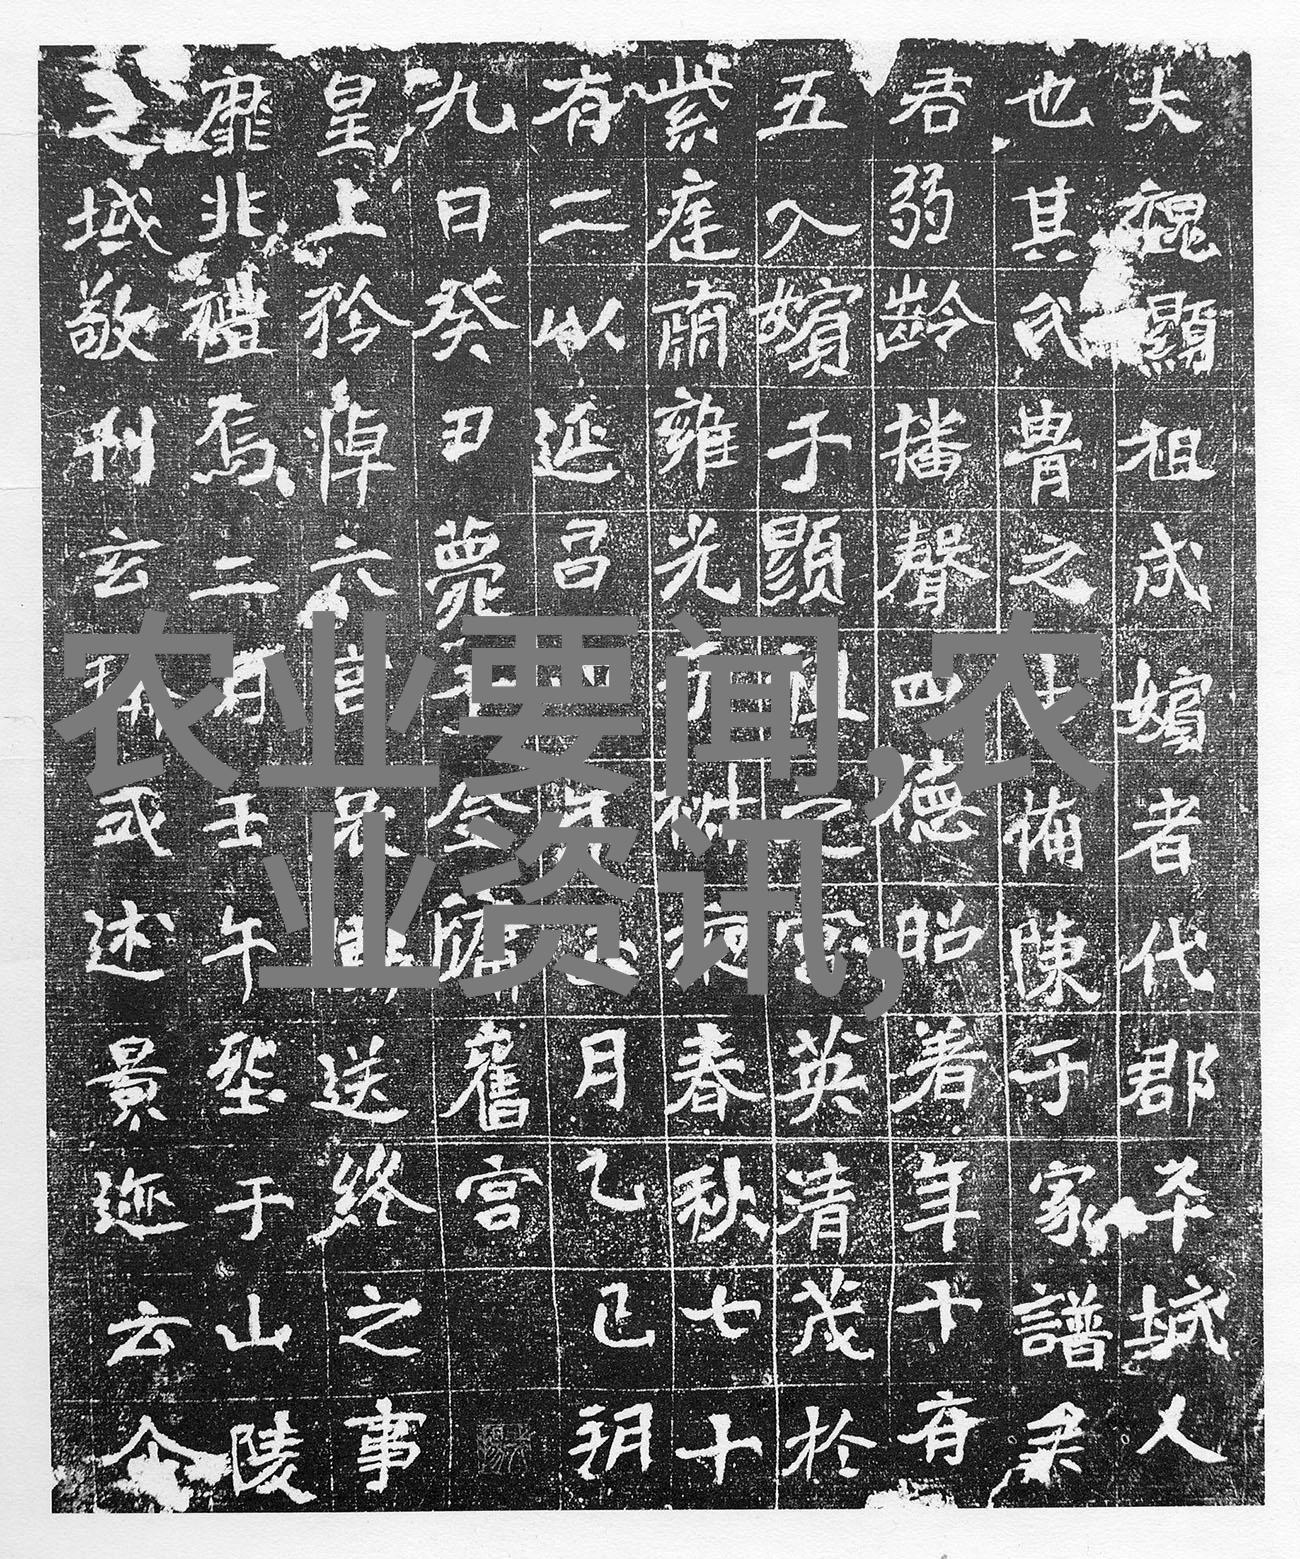 大魏顯祖成嬪者代郡平城人
也其氏冑之備陳于家譜
君弱齡播聲四德昭著年十有
五入嬪于顯祖之宮英清茂於
紫庭肅雍光椒掖春秋七十
有二以延昌月乙巳朔
九日癸丑薨于金墉舊宮
皇上矜悼六宮哀送終之事
靡非禮焉二月壬午窆于山陵
之域敬刊玄式述景迹云
农业要闻,农
业资讯,